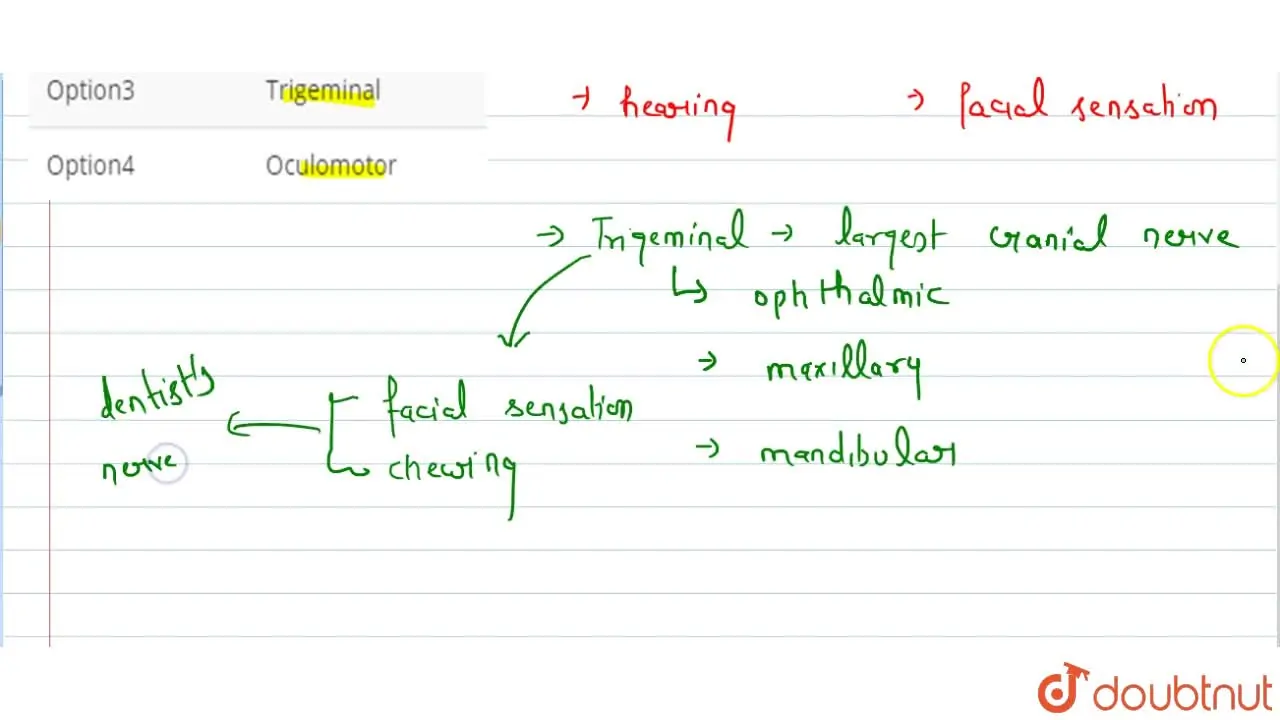 Option3 Trigeminal → hearing → facial sensation
Option4 Oculomotor
→ Trigeminal → largest cranial nerve
↳ ophthalmic
→ maxillary
dentist's
facial sensation
→ mandibular
nerve
chewing
doubtnut